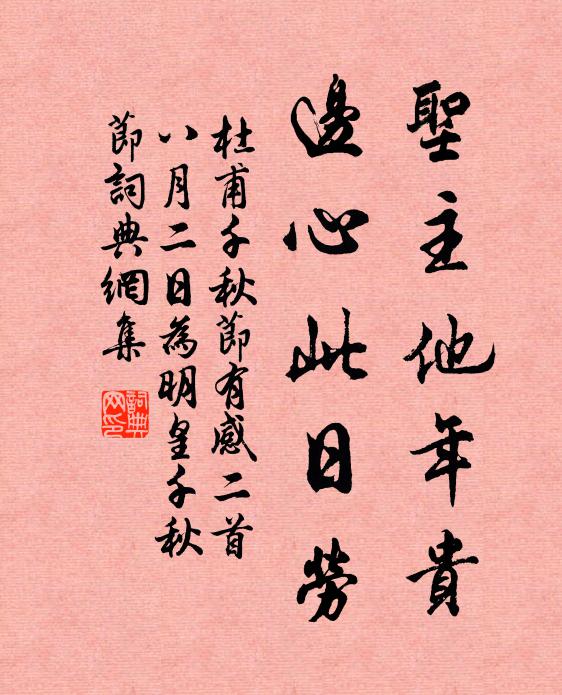 聖主他年貴
邊心此日勞
杜甫千秋節有感二首
八月二日為明皇千秋
節詞典網集
詞典網印